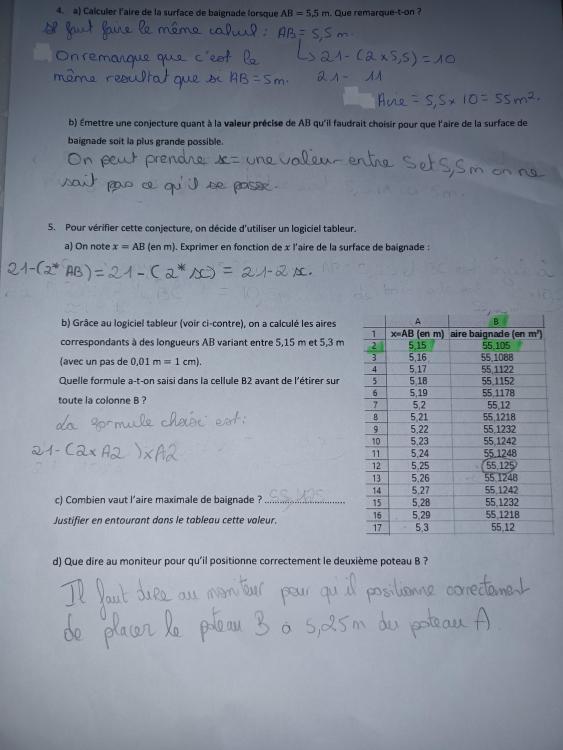 4. a) Calculer l'aire de la surface de baignade lorsque AB = 5,5 m. Que remarque-t-on ?
Il faut faire le même calcul : AB = 5,5 m.
↳ 21-(2x5,5) = 10
On remarque que c'est le
même resultat que si AB = 5m.
21- 11
Aire = 5,5 x 10 = 55 m².
b) Émettre une conjecture quant à la valeur précise de AB qu'il faudrait choisir pour que l'aire de la surface de
baignade soit la plus grande possible.
On peut prendre x = une valeur entre 5 et 5,5 m on ne
sait pas ce qu'il se passe.
5. Pour vérifier cette conjecture, on décide d'utiliser un logiciel tableur.
a) On note x = AB (en m). Exprimer en fonction de x l'aire de la surface de baignade :
21-(2* AB) = 21-(2* x) = 21-2x.
b) Grâce au logiciel tableur (voir ci-contre), on a calculé les aires
correspondants à des longueurs AB variant entre 5,15 m et 5,3 m
(avec un pas de 0,01 m = 1 cm).
Quelle formule a-t-on saisi dans la cellule B2 avant de l'étirer sur
toute la colonne B ?
La formule choisi est :
21-(2xA2)xA2
c) Combien vaut l'aire maximale de baignade ? 55,125
Justifier en entourant dans le tableau cette valeur.
A B
1 x=AB (en m) aire baignade (en m²)
2 5,15 55,105
3 5,16 55,1088
4 5,17 55,1122
5 5,18 55,1152
6 5,19 55,1178
7 5,2 55,12
8 5,21 55,1218
9 5,22 55,1232
10 5,23 55,1242
11 5,24 55,1248
12 5,25 55,125
13 5,26 55,1248
14 5,27 55,1242
15 5,28 55,1232
16 5,29 55,1218
17 5,3 55,12
d) Que dire au moniteur pour qu'il positionne correctement le deuxième poteau B ?
Il faut dire au moniteur pour qu'il positionne correctement
de placer le poteau B à 5,25 m du poteau A.